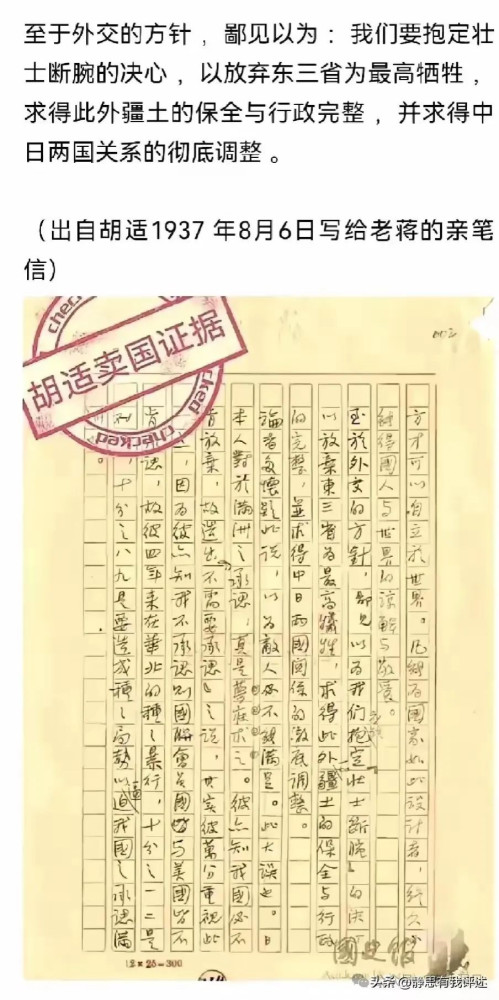 至于外交的方针 ，鄙见以为 ：我们要抱定壮
士断腕的决心 ，以放弃东三省为最高牺牲 ，
求得此外疆土的保全与行政完整 ，并求得中
日两国关系的彻底调整 。
（出自胡适1937 年8月6日写给老蒋的亲笔
信）
checked
胡适卖国证据
checked
方才可以自立於世界。凡能為國家如此設計者，終久必
能得國人与世界的諒解与敬愛。
至於外交的方針，鄙見以为我们抱定「壯士斷腕」的決
以放棄東三省為最高犧牲，求得此外疆土的保全与行政
的完整，並求得中日兩國関係的澈底調整。
論者多懷疑此說，以为敵人必不能滿足。此大誤也。日
本人對於滿洲之承認，真是夢寐求之。彼亦知我國必不
肯放棄，故造出「不需要承認」之說，其实彼萬分重視此
，因为彼亦知我不承認則國聯會員國皆与美國皆不
肯承認，故彼四年来在華北的種之暴行，十分之一二是
，十分之八九是要造成種之局勢以逼我國之承認滿
。
12×25=300
國史館
头条 @静思有我评述